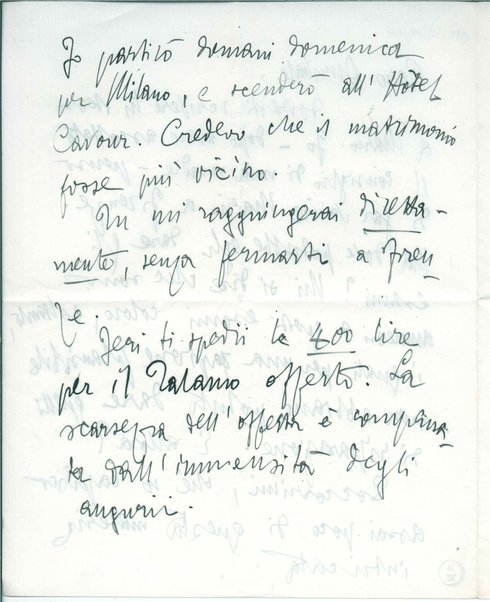 Io partirò domani domenica
per Milano, e scenderò all'Hôtel
Cavour. Credevo che il matrimonio
fosse più vicino.
Tu mi raggiungerai diretta-
mente, senza fermarti a Firen-
ze.
Ieri ti spedii le 400 lire
per il Talamo offerto. La
scarsezza dell'offerta è compensa-
ta dall'immensità degli
augurii.